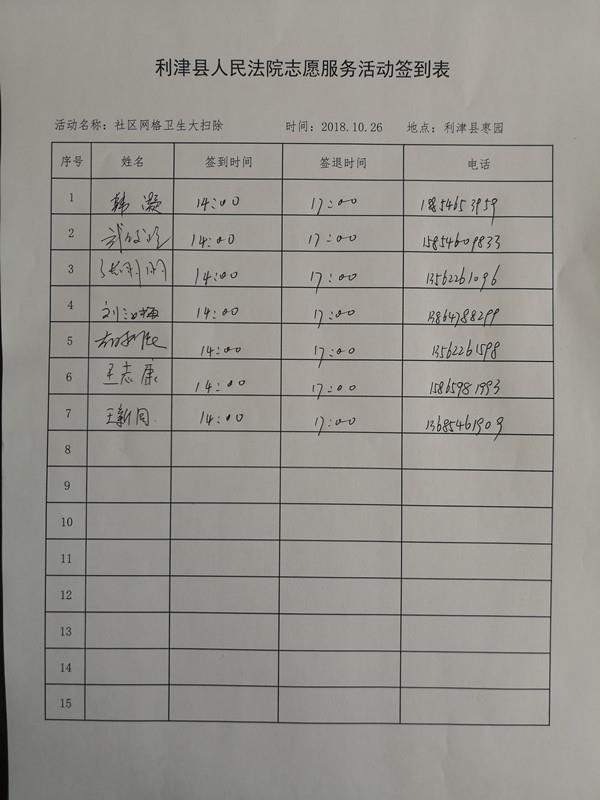 利津县人民法院志愿服务活动签到表
活动名称：社区网格卫生大扫除 时间：2018.10.26 地点：利津县枣园
序号 姓名 签到时间 签退时间 电话
1 韩凝 14:00 17:00 18854653959
2 14:00 17:00 15854609833
3 张利明 14:00 17:00 13562261096
4 14:00 17:00 13864788299
5 14:00 17:00 13562261598
6 王志康 14:00 17:00 15865981993
7 王新同 14:00 17:00 13685461909
8
9
10
11
12
13
14
15